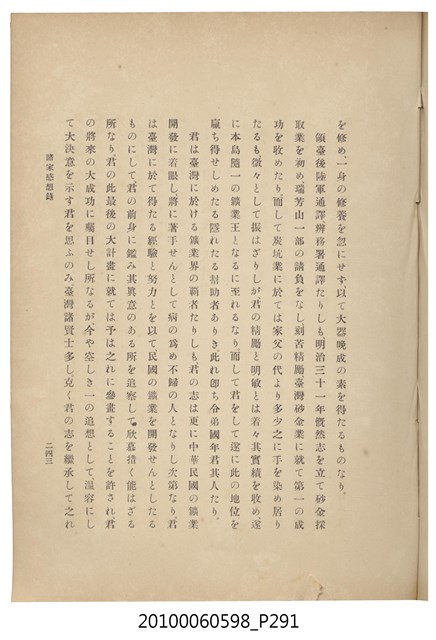 を修め、一身の修養を忽にせず以て大器晩成の素を得たるものなり。
領臺後陸軍通譯、辨務署通譯たりしも明治三十一年慨然志を立て砂金採
取業を初め瑞芳山一部の請負をなし刻苦精勵、臺灣砂金業に就て第一の成
功を收めたり而して炭坑業に於ては家父の代より多少之に手を染め居り
たるも微々として振はざりしが君の精勵と明敏とは着々其實績を收め、遂
に本島隨一の鑛業王となるに至れるなり而して君をして遂に此の地位を
贏ち得せしめたる隱れたる幇助者ありき、此れ卽ち令弟國年君其人たり。
君は臺灣に於ける鑛業界の覇者たりしも、君の志は更に中華民國の鑛業
開發に着眼し、將に著手せんとして病の爲め不歸の人となりし次第なり君
は臺灣に於て得たる經驗と努力とを以て民國の鑛業を開發せんとしたる
ものにして、君の前身に鑑み其眞意のある所を追察して、欣慕措く能はざる
所なり君の此最後の大計畫に就ては予は之れに參畫することを許され、君
の將來の大成功に矚目せし所なるが、今や空しき一の追想として、溫容にし
て大決意を示す君を思ふのみ、臺灣諸賢士多し、克く君の志を繼承して之れ
諸家感想錄
二四三
20100060598_P291